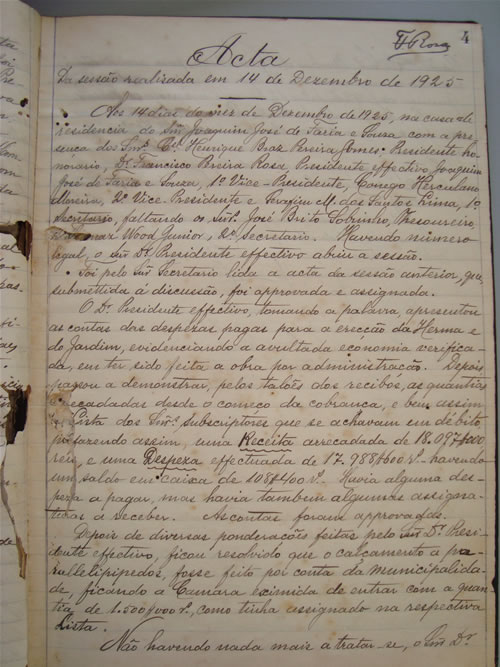 4
F Rosa
Acta
Da sessão realizada em 14 de Dezembro de 1925
Aos 14 dias do mez de Dezembro de 1925, na casa de
residencia do Snr. Joaquim José de Faria e Souza com a pre-
sença dos Snrs. Henrique Braz Pereira Gomes Presidente ho-
norário, Dr. Francisco Pereira Rosa Presidente effectivo, Joaquim
José de Faria e Souza, 1º Vice-Presidente, Conego Herculano
Moreira, 2º Vice Presidente e Serafim M. dos Santos Lima, 1º
Secretario, faltando os Snrs. José Brito Sobrinho, Thesoureiro
Wood Junior, 2º Secretario. Havendo numero
legal, o Snr. Dr. Presidente effectivo abriu a sessão.
Foi pelo Snr. Secretario lida a acta da sessão anterior, que,
submettida á discussão, foi approvada e assignada.
O Dr. Presidente effectivo, tomando a palavra, apresentou
as contas das despezas pagas para a erecção da Herma e
do Jardim, evidenciando a avultada economia verifica-
da, em ter sido feita a obra por administração. Depois
passou a demonstrar, pelos talões dos recibos, as quantias
arrecadadas desde o começo da cobrança, e bem assim
Lista dos Snrs. Subscriptores que se achavam em débito,
fazendo assim, uma Receita arrecadada de 18.097$000
reis, e uma Despeza effectuada de 17.988$600 rs. havendo
um saldo em caixa de 108$400 rs. Havia alguma des-
peza a pagar, mas havia tambem algumas assigna-
turas a receber. As contas foram approvadas.
Depois de diversas ponderações feitas pelo Snr. Dr. Presi-
dente effectivo, ficou resolvido que o calçamento a pa-
rallelipipedos, fosse feito por conta da Municipalida-
de, ficando a Camara eximida de entrar com a quan-
tia de 1.500$000 rs., como tinha assignado na respectiva
Lista.
Não havendo nada mais a tratar-se, o Snr. Dr.